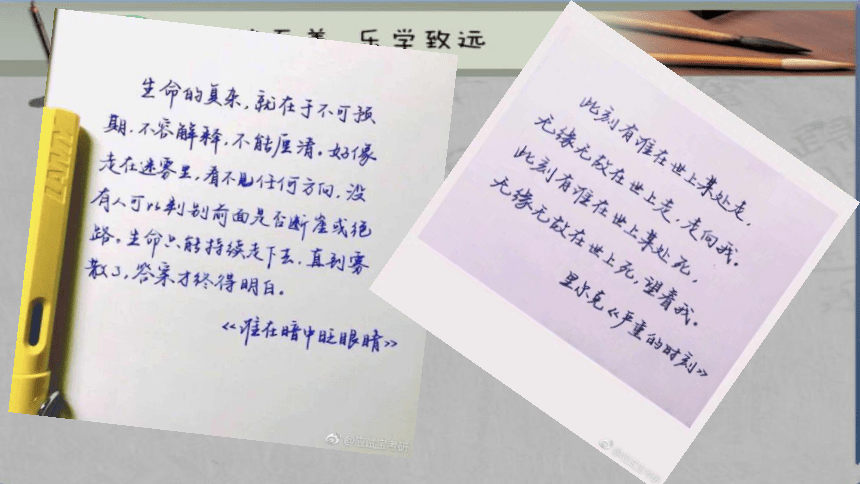 乐学致远
生命的复杂，就在于不可预
期，不容解释，不能厘清。好像
走在迷雾里，看不见任何方向，没
有人可以判别前面是否断崖或绝
路。生命只能持续走下去，直到雾
散了，答案才终得明白。
《谁在暗中眨眼睛》
此刻有谁在世上某处走，
无缘无故在世上走，走向我。
此刻有谁在世上某处死，
无缘无故在世上死，望着我。
里尔克《严重的时刻》